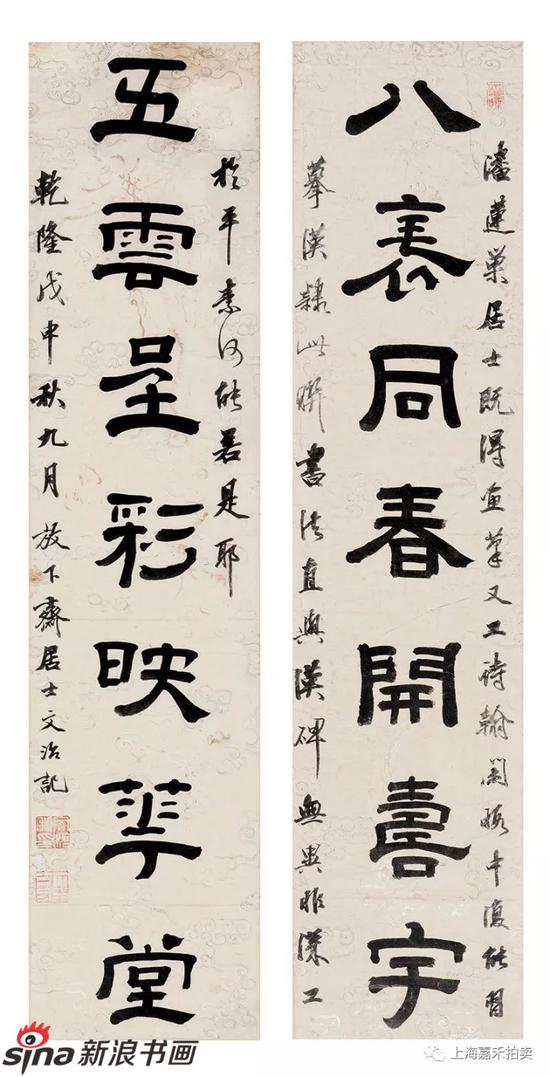 潘蓮巢居士既得画筆又工詩翰閒暇中復能習
八袠同春開壽宇
摹漢隸此聯書法直與漢碑無異非深工
於平素何能若是耶
五雲呈彩映華堂
乾隆戊申秋九月 放下齋居士文治記
sina新浪书画
上海嘉禾拍卖